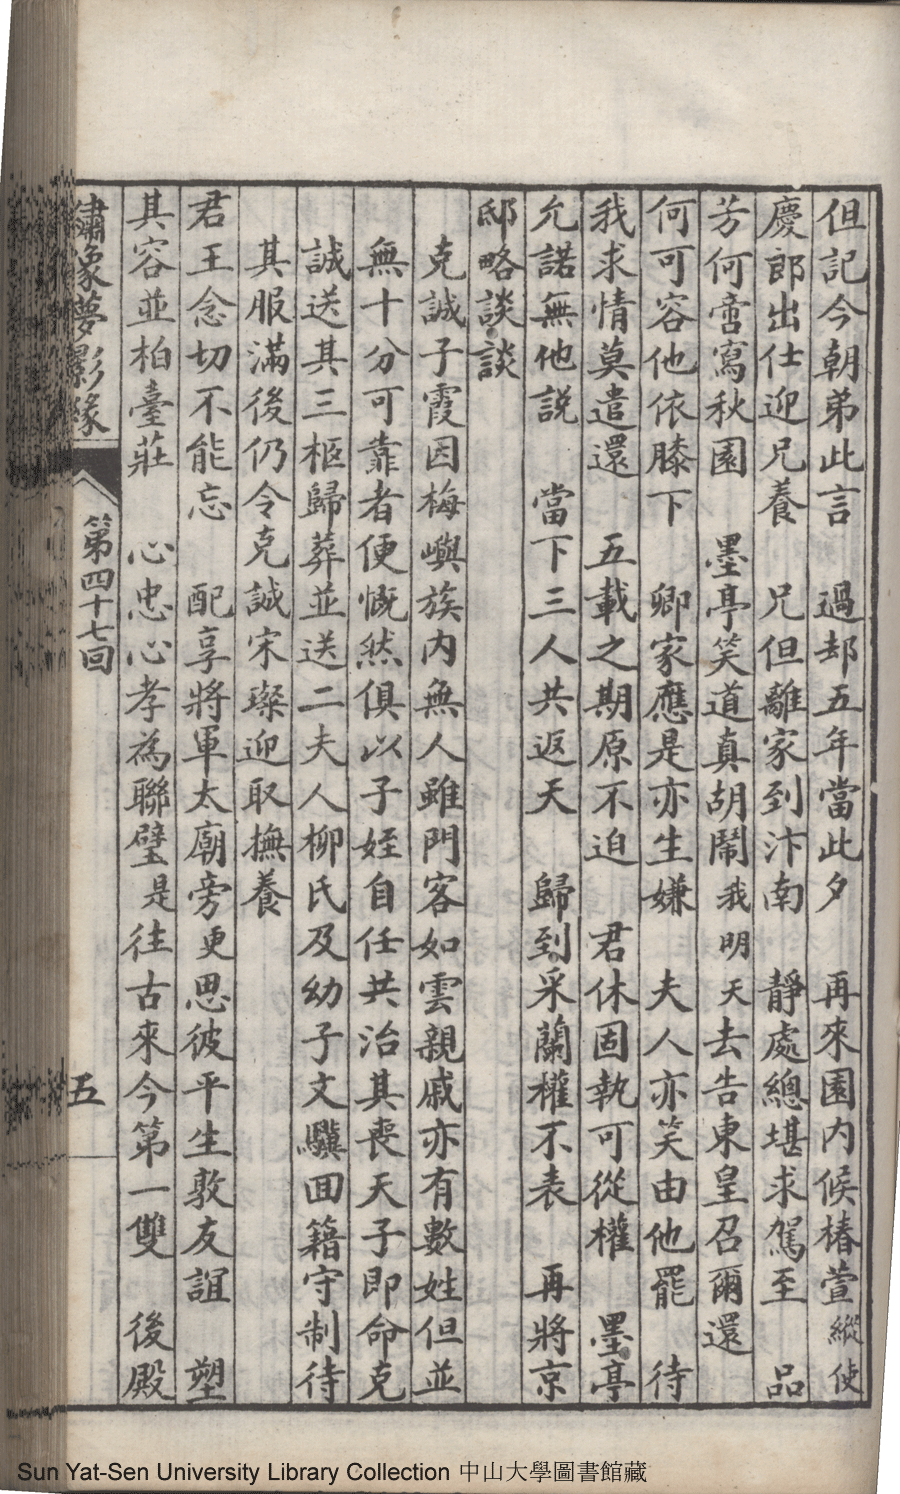 但記今朝弟此言　過却五年當此夕　再來園內候椿萱縱使
慶郎出仕迎兄養　兄但離家到汴南　靜處總堪求駕至　品
芳何啻寫秋園　墨亭笑道真胡鬧我明天去告東皇召爾還
何可容他依膝下　卿家應是亦生嫌　夫人亦笑由他罷　待
我求情莫遣還　五載之期原不迫　君休固執可從權　墨亭
允諾無他說　當下三人共返天　歸到采蘭權不表　再將京
邸略談談
克誠子霞因梅嶼族內無人雖門客如雲親戚亦有數姓但並
無十分可靠者便慨然俱以子姪自任共治其喪天子即命克
誠送其三柩歸葬並送二夫人柳氏及幼子文驥回籍守制待
其服滿後仍令克誠宋璨迎取撫養
君王念切不能忘　配享將軍太廟旁更思彼平生敦友誼　塑
其容並柏臺莊　心忠心孝為聯璧是往古來今第一雙　後殿
繡像夢影緣　第四十七回　五
Sun Yat-Sen University Library Collection 中山大學圖書館藏